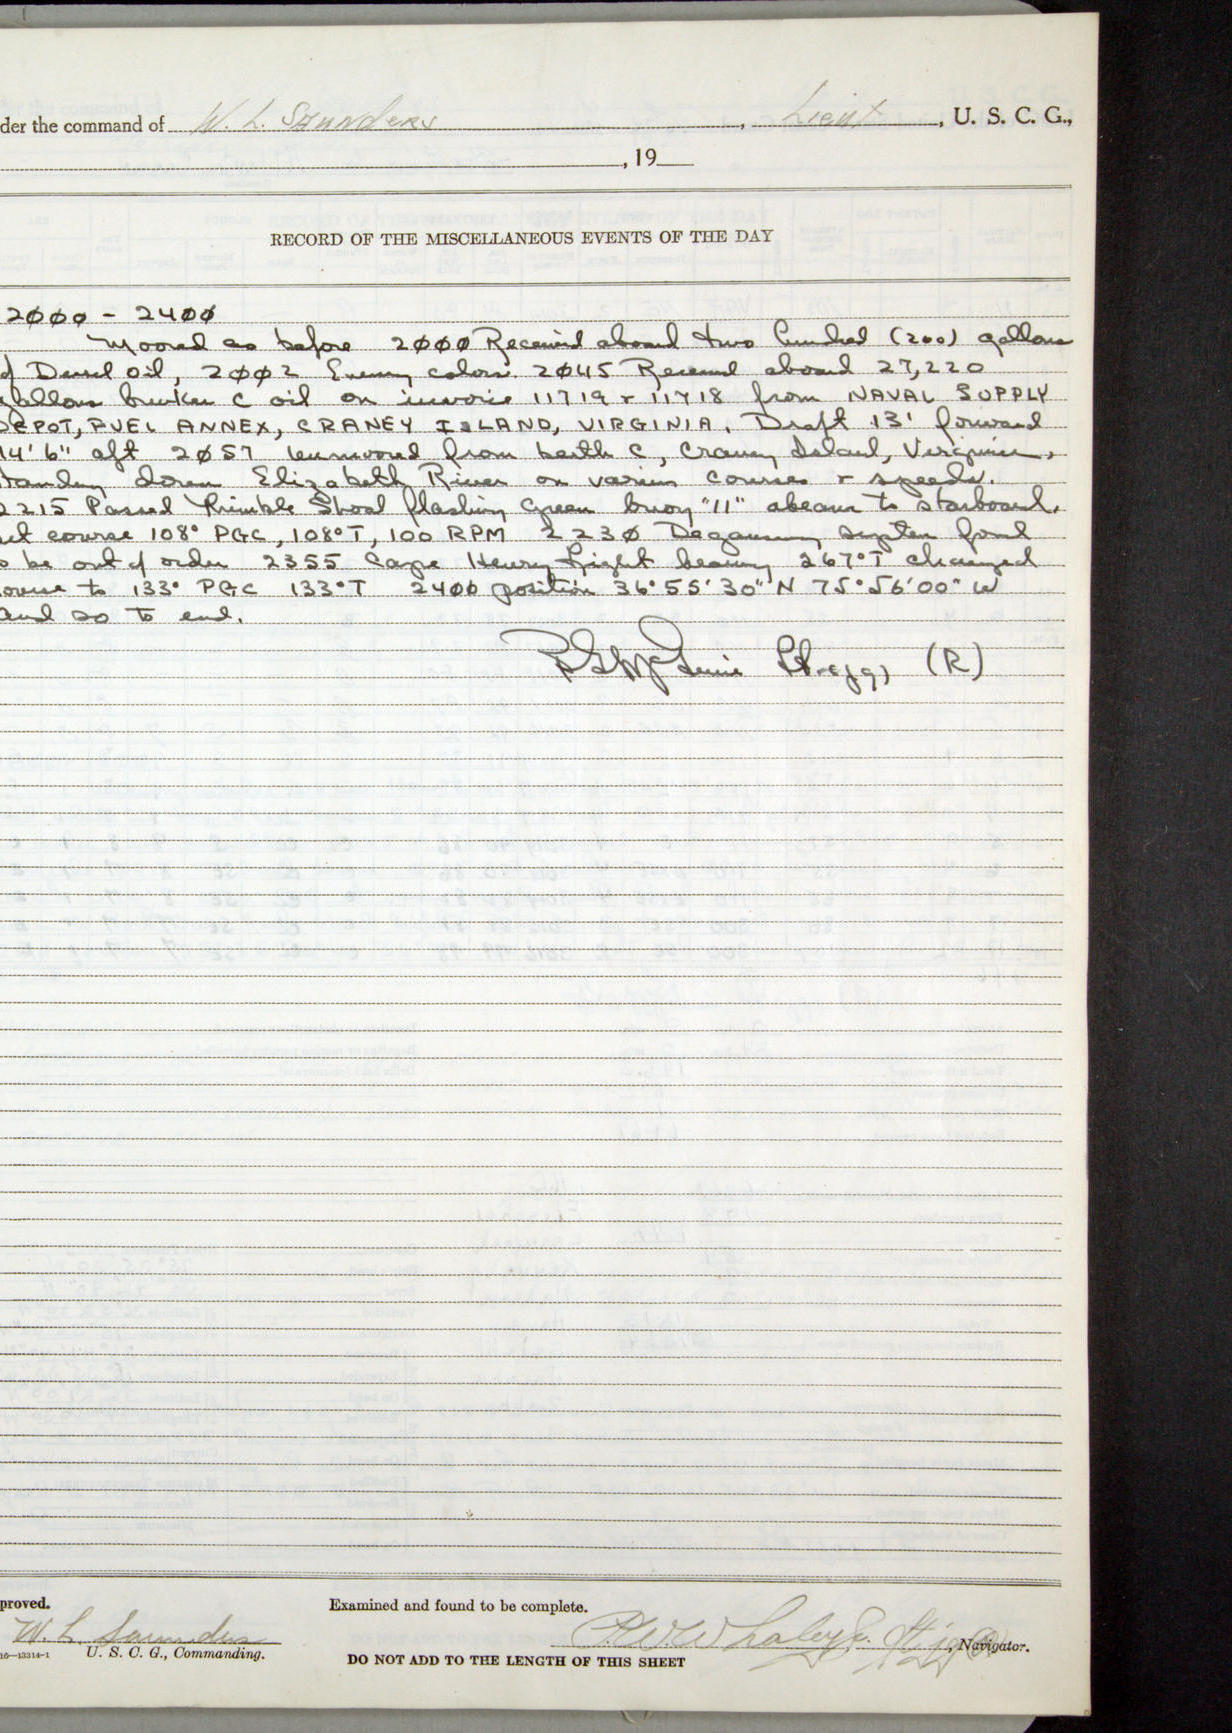 der the command of W. L. Saunders, Lieut, U. S. C. G.,
, 19
RECORD OF THE MISCELLANEOUS EVENTS OF THE DAY
2000 - 2400
Moored as before 2000 Received aboard two hundred (200) gallons
of Diesel oil, 2002 colors. 2045 Received aboard 27,220
gallons bunker C oil on invoice 11719 & 11718 from NAVAL SUPPLY
DEPOT, FUEL ANNEX, CRANEY ISLAND, VIRGINIA. Draft 13' forward
14'6" aft 2057 unmoored from berth C, Craney Island, Virginia,
tanding down Elizabeth River on various courses & speeds.
2215 Passed Thimble Shoal flashing green buoy "11" abeam to starboard.
et course 108° PGC, 108°T, 100 RPM 2230 Degaussing system found
o be out of order 2355 Cape Henry Light bearing 267°T changed
ourse to 133° PGC 133°T 2400 position 36°55'30" N 75°56'00" W
and so to end.
(R)
proved.
Examined and found to be complete.
W. L. Saunders
, Navigator.
16—13314-1
U. S. C. G., Commanding.
DO NOT ADD TO THE LENGTH OF THIS SHEET